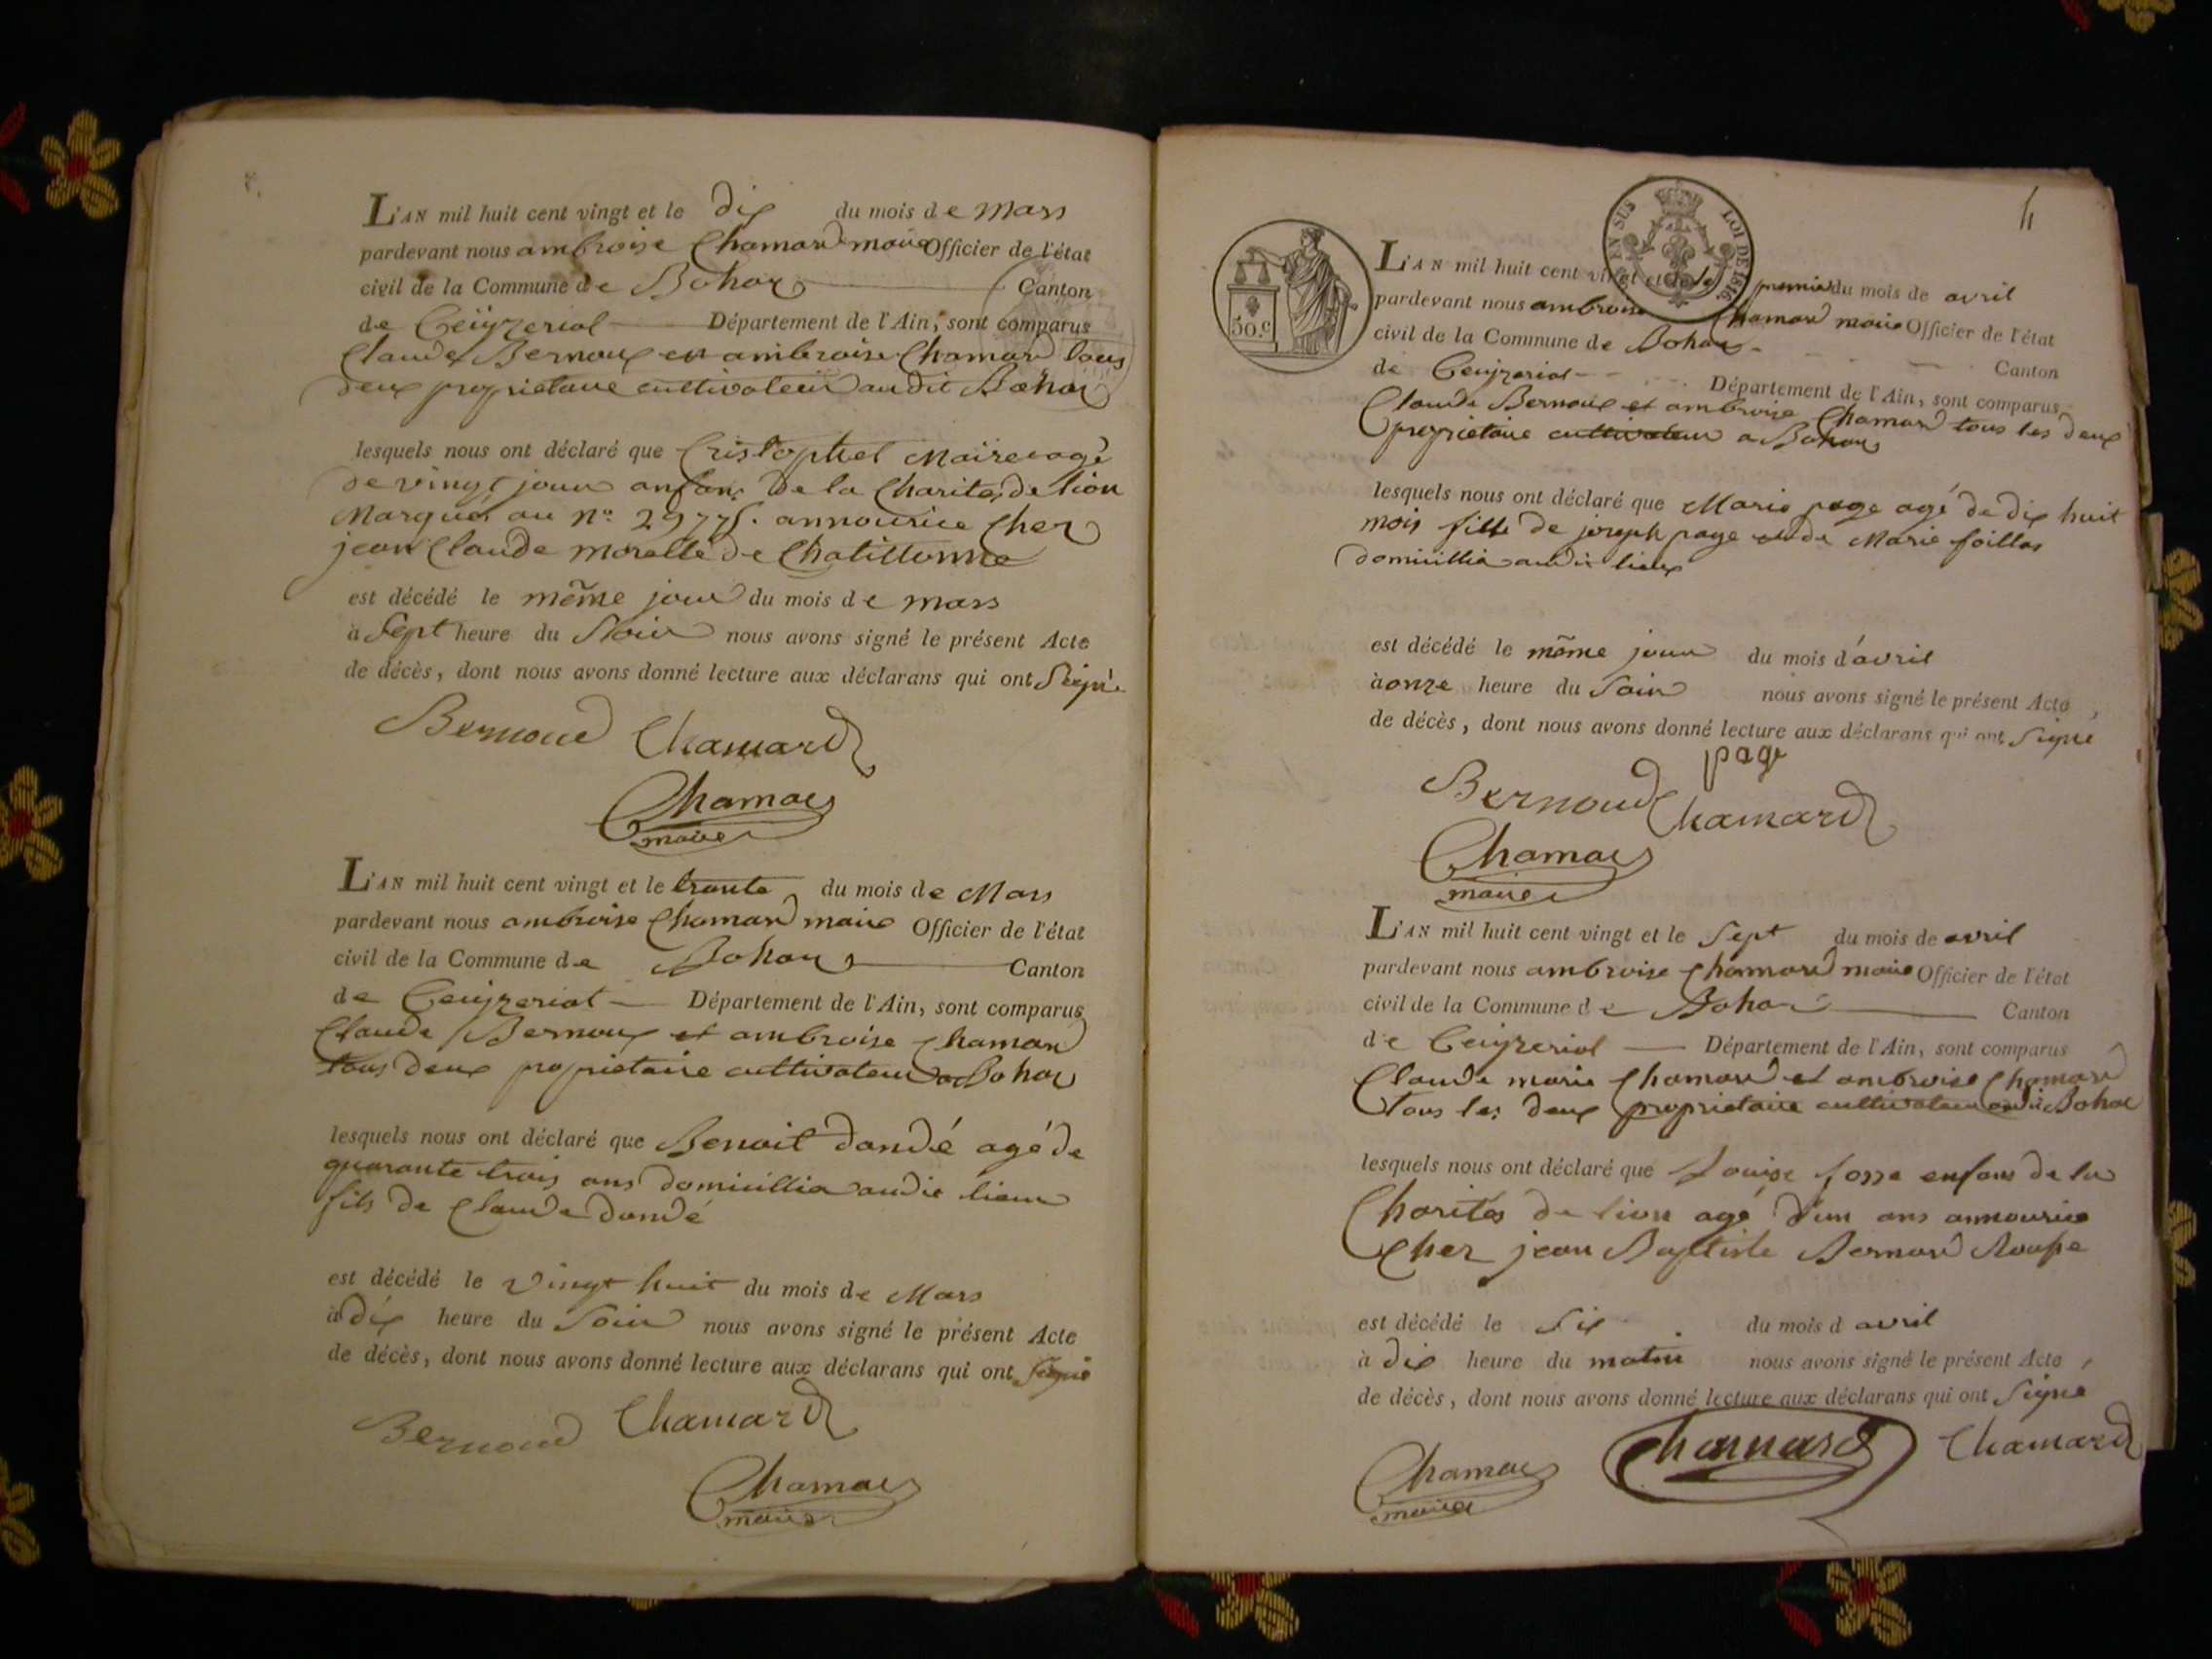 L'AN mil huit cent vingt et le dix du mois de mars
pardevant nous ambroise Chamard maire Officier de l'état
civil de la Commune de Bohas Canton
de Ceÿzeriat Département de l'Ain, sont comparus
Claude Bernoux et ambroise Chamard tous
deux proprietaire cultivateur audit Bohas
lesquels nous ont déclaré que Cristophel agé
de vingt jour anfans de la Charite de lion
Marqué au n.o annourice Cher
jean Claude de
est décédé le même jour du mois de mars
à Sept heure du Soir nous avons signé le présent Acte
de décès, dont nous avons donné lecture aux déclarans qui ont Seigné
Bernoud Chamard
Chamard
maire
L'AN mil huit cent vingt et le trante du mois de Mars
pardevant nous ambroise Chamard maire Officier de l'état
civil de la Commune de Bohas Canton
de Ceÿzeriat Département de l'Ain, sont comparus
Claude Bernoux et ambroise Chamard
tous deux propriétaire cultivateur a Bohas
lesquels nous ont déclaré que Benoit dandé agé de
quarante trois ans domicillia audit lieux
fils de Claude dandé
est décédé le vingt huit du mois de Mars
à dix heure du Soir nous avons signé le présent Acte
de décès, dont nous avons donné lecture aux déclarans qui ont Signé
Bernoud Chamard
Chamard
maire
4
EN SUS LOI DE 1816.
50.c
L'AN mil huit cent vingt et le premier du mois de avril
pardevant nous ambroise Chamard maire Officier de l'état
civil de la Commune de Bohas Canton
de Ceÿzeriat Département de l'Ain, sont comparus
Claude Bernoux et ambroise Chamard tous les deux
proprietaire cultivateur a Bohas
lesquels nous ont déclaré que Marie page agé de dix huit
mois fille de joseph page et de Marie foillas
domicillia audit lieux
est décédé le même jour du mois d'avril
à onze heure du Soir nous avons signé le présent Acte
de décès, dont nous avons donné lecture aux déclarans qui ont Signé
page
Bernoud Chamard
Chamard
maire
L'AN mil huit cent vingt et le Sept du mois de avril
pardevant nous ambroise Chamard maire Officier de l'état
civil de la Commune de Bohas Canton
de Ceÿzeriat Département de l'Ain, sont comparus
Claude marie Chamard et ambroise Chamard
tous les deux proprietaire cultivateur audit Bohas
lesquels nous ont déclaré que Louise enfans de la
Charités de lion agé d'un ans annourice
Cher jean Baptiste Bernard
est décédé le Six du mois d avril
à dix heure du matin nous avons signé le présent Acte
de décès, dont nous avons donné lecture aux déclarans qui ont Signé
Chamard Chamard Chamard
maire